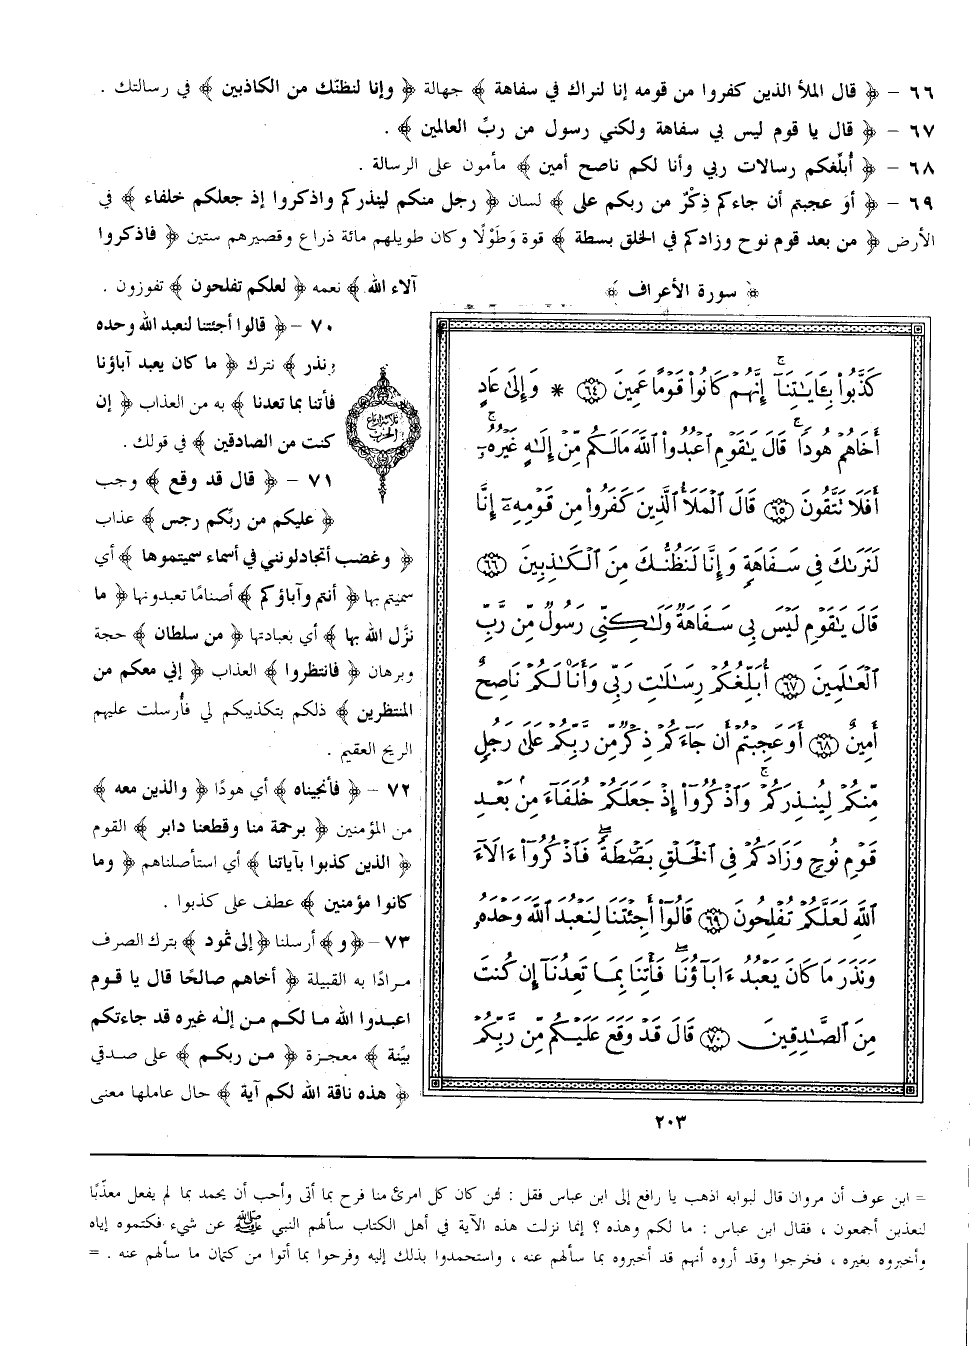 ٦٦ – ﴿ قال الملأ الذين كفروا من قومه إنا لنراك في سفاهة ﴾ جهالة ﴿ وإنا لنظنّك من الكاذبين ﴾ في رسالتك .
٦٧ – ﴿ قال يا قوم ليس بي سفاهة ولكني رسول من ربِّ العالمين ﴾ .
٦٨ – ﴿ أُبلِّغكم رسالات ربي وأنا لكم ناصح أمين ﴾ مأمون على الرسالة .
٦٩ – ﴿ أوَ عجبتم أن جاءكم ذِكْرٌ من ربكم على ﴾ لسان ﴿ رجل منكم لينذركم واذكروا إذ جعلكم خلفاء ﴾ في
الأرض ﴿ من بعد قوم نوح وزادكم في الخلق بسطة ﴾ قوة وَطَوْلًا وكان طويلهم مائة ذراع وقصيرهم ستين ﴿ فاذكروا
آلاء الله ﴾ نعمه ﴿ لعلكم تفلحون ﴾ تفوزون .
٧٠ – ﴿ قالوا أجئتنا لنعبد الله وحده
ونذر ﴾ نترك ﴿ ما كان يعبد آباؤنا
فأتنا بما تعدنا ﴾ به من العذاب ﴿ إن
كنت من الصادقين ﴾ في قولك .
٧١ – ﴿ قال قد وقع ﴾ وجب
﴿ عليكم من ربّكم رجس ﴾ عذاب
﴿ وغضب أتجادلونني في أسماء سميتموها ﴾ أي
سميتم بها ﴿ أنتم وآباؤكم ﴾ أصنامًا تعبدونها ﴿ ما
نزَّل الله بها ﴾ أي بعبادتها ﴿ من سلطان ﴾ حجة
وبرهان ﴿ فانتظروا ﴾ العذاب ﴿ إني معكم من
المنتظرين ﴾ ذلكم بتكذيبكم لي فأُرسلت عليهم
الريح العقيم .
٧٢ – ﴿ فأنجيناه ﴾ أي هودًا ﴿ والذين معه ﴾
من المؤمنين ﴿ برحمة منا وقطعنا دابر ﴾ القوم
﴿ الذين كذبوا بآياتنا ﴾ أي استأصلناهم ﴿ وما
كانوا مؤمنين ﴾ عطف على كذبوا .
٧٣ – ﴿ و ﴾ أرسلنا ﴿ إلى ثمود ﴾ بترك الصرف
مرادًا به القبيلة ﴿ أخاهم صالحًا قال يا قوم
اعبدوا الله ما لكم من إلٰه غيره قد جاءتكم
بيِّنة ﴾ معجزة ﴿ من ربكم ﴾ على صدقي
﴿ هذه ناقة الله لكم آية ﴾ حال عاملها معنى
﴿ سورة الأعراف ﴾
كَذَّبُوا۟ بِـَٔايَـٰتِنَآ إِنَّهُمْ كَانُوا۟ قَوْمًا عَمِينَ ﴿٦٤﴾ * وَإِلَىٰ عَادٍ
أَخَاهُمْ هُودًا قَالَ يَـٰقَوْمِ ٱعْبُدُوا۟ ٱللَّهَ مَالَكُم مِّنْ إِلَـٰهٍ غَيْرُهُۥٓ
أَفَلَا تَتَّقُونَ ﴿٦٥﴾ قَالَ ٱلْمَلَأُ ٱلَّذِينَ كَفَرُوا۟ مِن قَوْمِهِۦٓ إِنَّا
لَنَرَىٰكَ فِى سَفَاهَةٍ وَإِنَّا لَنَظُنُّكَ مِنَ ٱلْكَـٰذِبِينَ ﴿٦٦﴾
قَالَ يَـٰقَوْمِ لَيْسَ بِى سَفَاهَةٌ وَلَـٰكِنِّى رَسُولٌ مِّن رَّبِّ
ٱلْعَـٰلَمِينَ ﴿٦٧﴾ أُبَلِّغُكُمْ رِسَـٰلَـٰتِ رَبِّى وَأَنَا۠ لَكُمْ نَاصِحٌ
أَمِينٌ ﴿٦٨﴾ أَوَعَجِبْتُمْ أَن جَآءَكُمْ ذِكْرٌ مِّن رَّبِّكُمْ عَلَىٰ رَجُلٍ
مِّنكُمْ لِيُنذِرَكُمْ وَٱذْكُرُوٓا۟ إِذْ جَعَلَكُمْ خُلَفَآءَ مِنۢ بَعْدِ
قَوْمِ نُوحٍ وَزَادَكُمْ فِى ٱلْخَلْقِ بَصْۜطَةً فَٱذْكُرُوٓا۟ ءَالَآءَ
ٱللَّهِ لَعَلَّكُمْ تُفْلِحُونَ ﴿٦٩﴾ قَالُوٓا۟ أَجِئْتَنَا لِنَعْبُدَ ٱللَّهَ وَحْدَهُۥ
وَنَذَرَ مَا كَانَ يَعْبُدُ ءَابَآؤُنَا فَأْتِنَا بِمَا تَعِدُنَآ إِن كُنتَ
مِنَ ٱلصَّـٰدِقِينَ ﴿٧٠﴾ قَالَ قَدْ وَقَعَ عَلَيْكُم مِّن رَّبِّكُمْ
٢٠٣
= ابن عوف أن مروان قال لبوابه اذهب يا رافع إلى ابن عباس فقل : لئن كان كل امرئ منا فرح بما أتى وأحب أن يحمد بما لم يفعل معذّبًا
لنعذبن أجمعون ، فقال ابن عباس : ما لكم وهذه ؟ إنما نزلت هذه الآية في أهل الكتاب سألهم النبي ﷺ عن شيء فكتموه إياه
وأخبروه بغيره ، فخرجوا وقد أروه أنهم قد أخبروه بما سألهم عنه ، واستحمدوا بذلك إليه وفرحوا بما أتوا من كتمان ما سألهم عنه . =